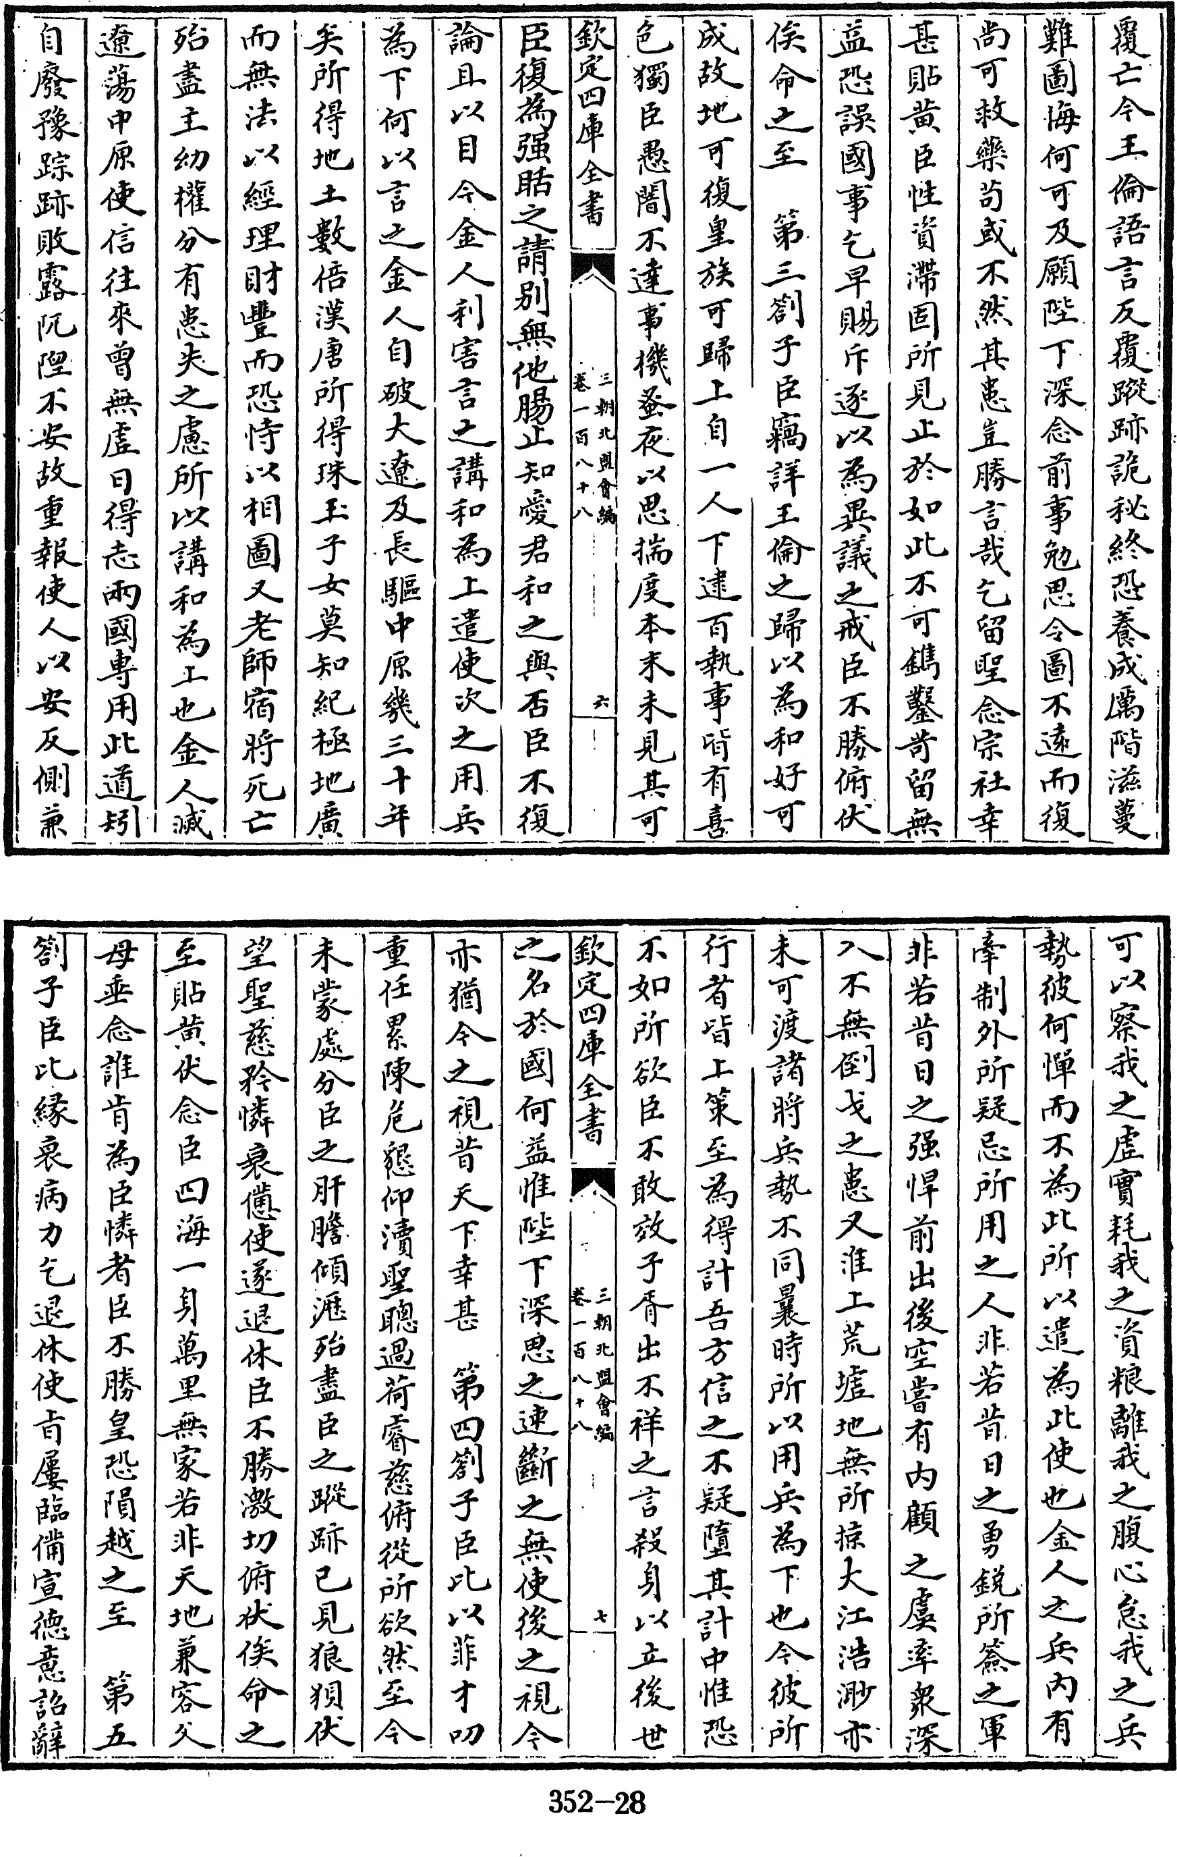 覆亡今王倫語言反覆蹤跡詭秘終恐養成厲階滋蔓
難圖悔何可及願陛下深念前事勉思令圖不遠而復
尚可救藥苟或不然其患豈勝言哉乞留聖念宗社幸
甚貼黄臣性資滯固所見止於如此不可鐫鑿苟留無
益恐誤國事乞早賜斥逐以為異議之戒臣不勝俯伏
俟命之至　第三劄子臣竊詳王倫之歸以為和好可
成故地可復皇族可歸上自一人下逮百執事皆有喜
色獨臣愚闇不達事機蚤夜以思揣度本末未見其可
欽定四庫全書
三朝北盟會編
卷一百八十八
六
臣復為强聒之請别無他腸止知愛君和之與否臣不復
論且以目今金人利害言之講和為上遣使次之用兵
為下何以言之金人自破大遼及長驅中原幾三十年
矣所得地土數倍漢唐所得珠玉子女莫知紀極地廣
而無法以經理財豐而恐恃以相圖又老師宿將死亡
殆盡主幼權分有患失之慮所以講和為上也金人滅
遼蕩中原使信往來曾無虛日得志兩國專用此道矧
自廢豫踪跡敗露阢隉不安故重報使人以安反側兼
可以察我之虛實耗我之資粮離我之腹心怠我之兵
勢彼何憚而不為此所以遣為此使也金人之兵内有
牽制外所疑忌所用之人非若昔日之勇銳所簽之軍
非若昔日之强悍前出後空嘗有内顧之虞率衆深
入不無倒戈之患又淮上荒墟地無所掠大江浩渺亦
未可渡諸將兵勢不同曩時所以用兵為下也今彼所
行者皆上策至為得計吾方信之不疑墮其計中惟恐
不如所欲臣不敢效子胥出不祥之言殺身以立後世
欽定四庫全書
三朝北盟會編
卷一百八十八
七
之名於國何益惟陛下深思之速斷之無使後之視今
亦猶今之視昔天下幸甚　第四劄子臣比以菲才叨
重任累陳危懇仰瀆聖聰過荷睿慈俯從所欲然至今
未蒙處分臣之肝膽傾瀝殆盡臣之蹤跡已見狼狽伏
望聖慈矜憐衰憊使遂退休臣不勝激切俯伏俟命之
至貼黄伏念臣四海一身萬里無家若非天地兼容父
母垂念誰肯為臣憐者臣不勝皇恐隕越之至　第五
劄子臣比緣衰病力乞退休使旨屢臨備宣德意詔辭
352-28